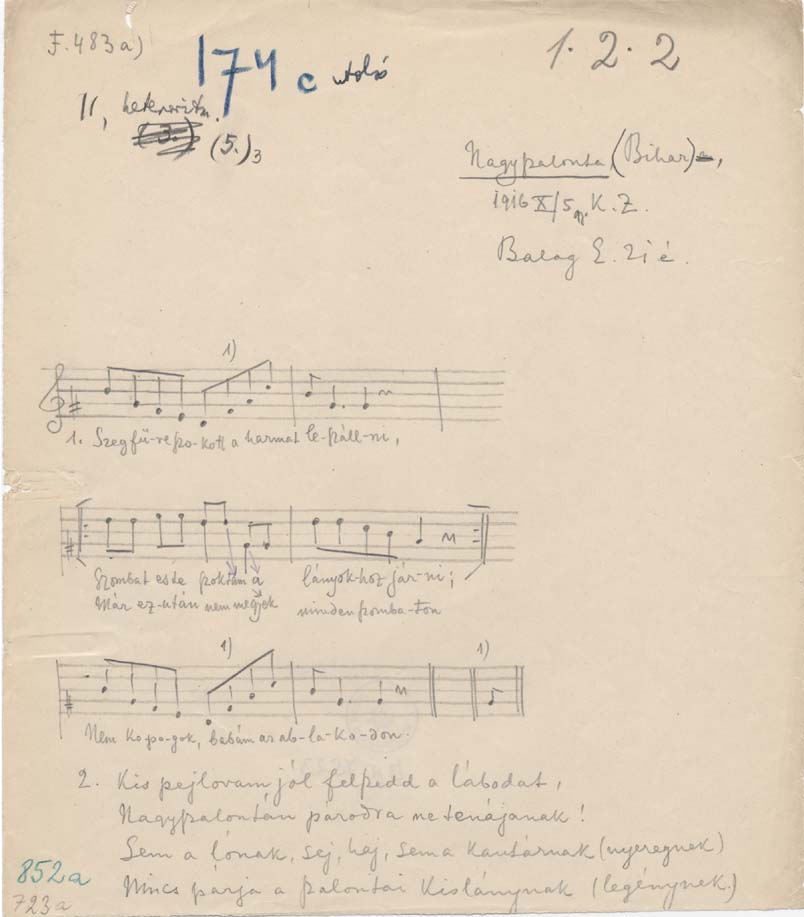 F. 483 a)
174 c utolsó
1. 2. 2
II, heteroritm.
(3.) (5.)3
Nagyszalonta, (Bihar),
1916 X/5 gy. K. Z.
Balog E. 21 é.
1)
1. Szegfű-re szo-kott a harmat le-száll-ni,
Szombat este szoktam a lányok-hoz jár-ni;
Már ez-után nem megyek minden szomba-ton
1) 1)
Nem ko-po-gok, babám az ab-la-ko-don.
2. Kis pejlovam, jól felszedd a lábodat,
Nagyszalontán párodra ne találjanak!
Sem a lónak, sej, hej, sem a kantárnak (nyeregnek)
Nincs párja a szalontai kislánynak (legénynek.)
852a
723a